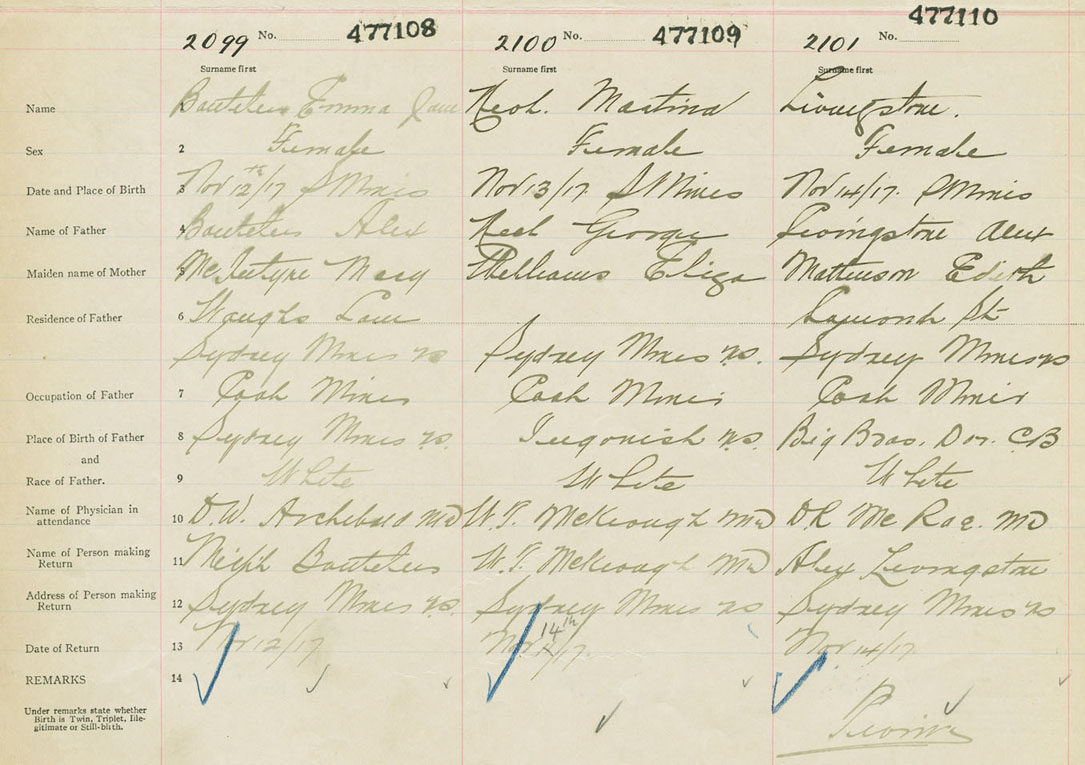 2099 No. 477108 2100 No. 477109 2101 No. 477110
Surname first Surname first Surname first
Name Emma Martina Livingstone.
Sex 2 Female Female Female
Date and Place of Birth 3 Nov 12th/17 S Mines Nov 13/17 S Mines Nov 14/17. S Mines
Name of Father 4 Alex George Livingstone Alex
Maiden name of Mother 5 McIntyre Mary Williams Eliza Edith
Residence of Father 6 St
Sydney Mines NS Sydney Mines NS. Sydney Mines NS
Occupation of Father 7 Coal Miner Coal Miner Coal Miner
Place of Birth of Father 8 Sydney Mines NS. Ingonish NS. Big Bras. Dor. CB
and
Race of Father. 9 White White White
Name of Physician in
attendance 10 D.W. Archibald MD W.T. McKeough MD DR McRae. MD
Name of Person making
Return 11 W.T. McKeough MD Alex Livingstone
Address of Person making
Return 12 Sydney Mines NS. Sydney Mines NS Sydney Mines NS
Date of Return 13 Nov 12/17 Nov 14th/17. Nov 14/17.
REMARKS 14
Under remarks state whether
Birth is Twin, Triplet, Ille-
gitimate or Still-birth.